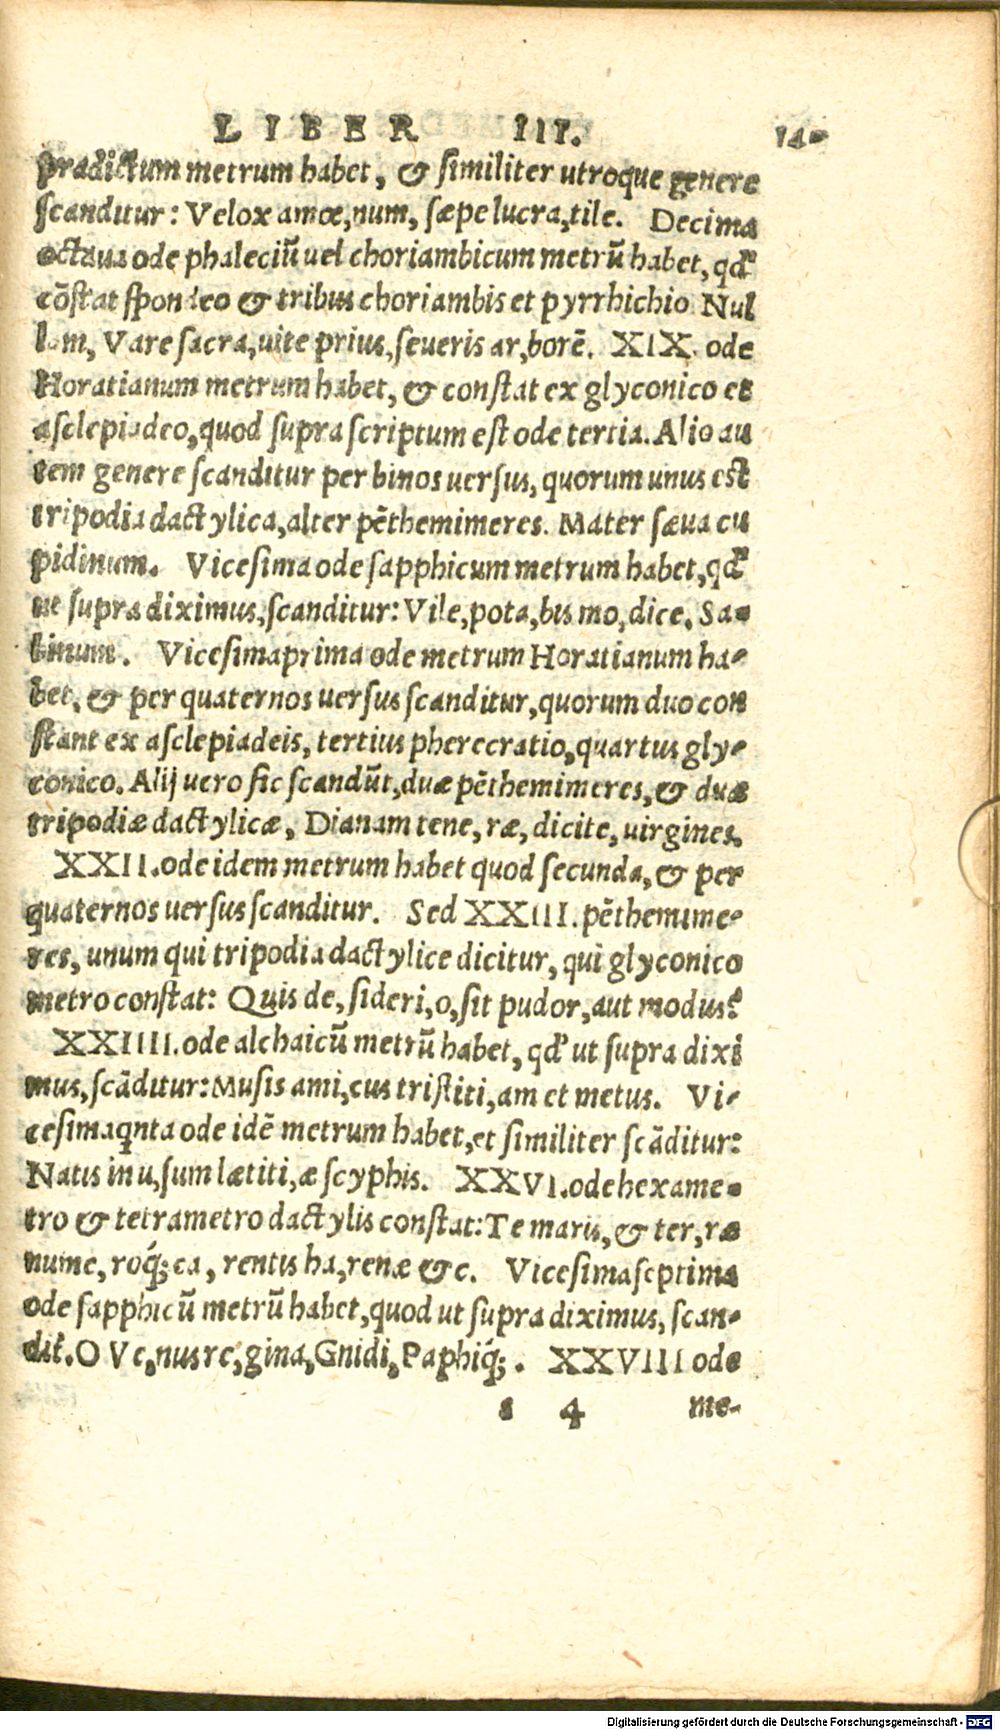 LIBER III. 140
prædictum metrum habet, & similiter utroque genere
scanditur: Velox amœ,num, sæpe lucra,tile. Decima
octaua ode phaleciū uel choriambicum metrū habet, qđ
cōstat spondeo & tribus choriambis et pyrrhichio Nul
lam, Vare sacra,uite prius,seueris ar,borē. XIX. ode
Horatianum metrum habet, & constat ex glyconico et
asclepiadeo,quod supra scriptum est ode tertia. Alio au
tem genere scanditur per binos uersus, quorum unus est
tripodia dactylica,alter pēthemimeres. Mater sæua cu
pidinum. Vicesima ode sapphicum metrum habet,qđ
ut supra diximus,scanditur: Vile,pota,bis mo,dice, Sa-
binum. Vicesimaprima ode metrum Horatianum ha-
bet, & per quaternos uersus scanditur,quorum duo con
stant ex asclepiadeis, tertius pherecratio,quartus gly-
conico. Alij uero sic scandūt,duæ pēthemimeres, & duæ
tripodiæ dactylicæ, Dianam tene, ræ, dicite, uirgines.
XXII. ode idem metrum habet quod secunda, & per
quaternos uersus scanditur. Sed XXIII. pēthemime-
res, unum qui tripodia dactylice dicitur, qui glyconico
metro constat: Quis de, sideri,o,sit pudor,aut modus?
XXIIII. ode alchaicū metrū habet, qđ ut supra dixi
mus,scāditur: Musis ami,cus tristiti,am et metus. Vi-
cesimaqnta ode idē metrum habet,et similiter scāditur:
Natis in u,sum lætiti,æ scyphis. XXVI. ode hexame-
tro & tetrametro dactylis constat: Te maris, & ter,ræ
nume, roq́; ca, rentis ha,renæ &c. Vicesimaseptima
ode sapphicū metrū habet,quod ut supra diximus, scan-
dit̃. O Ve,nus re,gina,Gnidi,Paphiq́;. XXVIII ode
s 4 me-
Digitalisierung gefördert durch die Deutsche Forschungsgemeinschaft - DFG